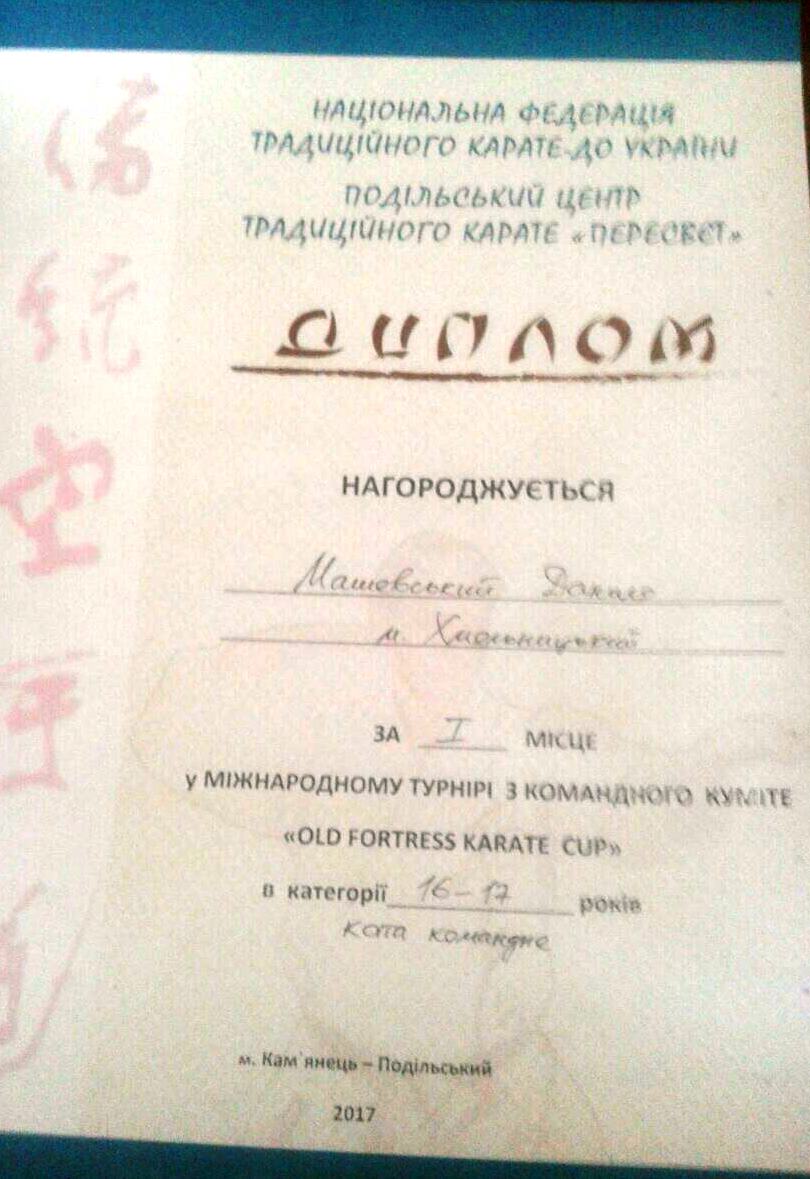 НАЦІОНАЛЬНА ФЕДЕРАЦІЯ
ТРАДИЦІЙНОГО КАРАТЕ-ДО УКРАЇНИ
ПОДІЛЬСЬКИЙ ЦЕНТР
ТРАДИЦІЙНОГО КАРАТЕ «ПЕРЕСВЄТ»
ДИПЛОМ
НАГОРОДЖУЄТЬСЯ
Машовський Данило
м. Хмельницький
ЗА I МІСЦЕ
у МІЖНАРОДНОМУ ТУРНІРІ З КОМАНДНОГО КУМІТЕ
«OLD FORTRESS KARATE CUP»
в категорії 16-17 років
ката командне
м. Кам`янець – Подільський
2017
傳
統
空
手